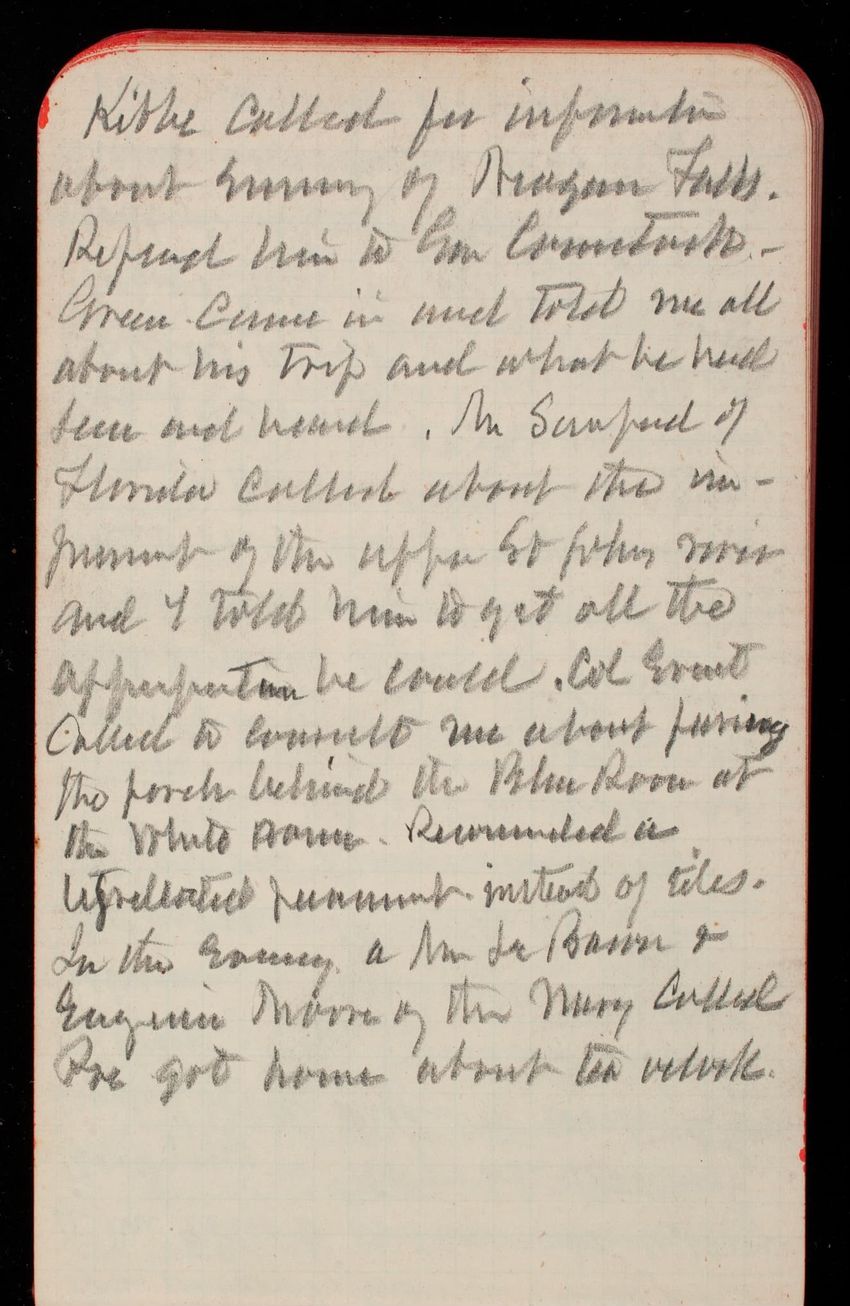 Kibbe called for information
about Survey of Niagara Falls.
Referred him to Gen Comstock. -
Green came in and told me all
about his trip and what he had
seen and heard. Mr
Florida called about the im-
provement of the upper St Johns river
and I told him to get all the
appropriation he could. Col Ernst
called to consult me about paving
the porch behind the Blue Room at
the White House. Recommended a
pavement instead of tiles.
In the Evening a Mr Le Baron &
Engineer Moore of the Navy called
Roe got home about ten oclock.